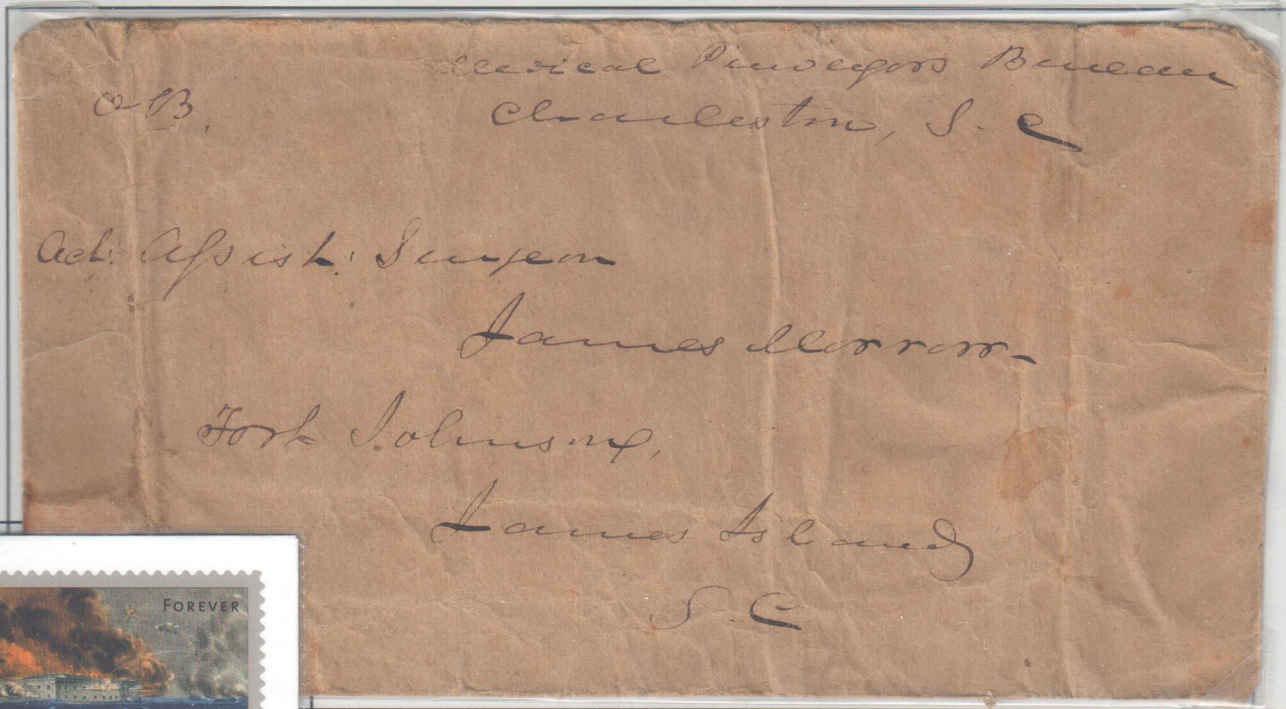 Medical Purveyors Bureau
OB.
Charleston, S. C
Act: Assist: Surgeon
James Morrow
Fort Johnson,
James Island
S. C
FOREVER